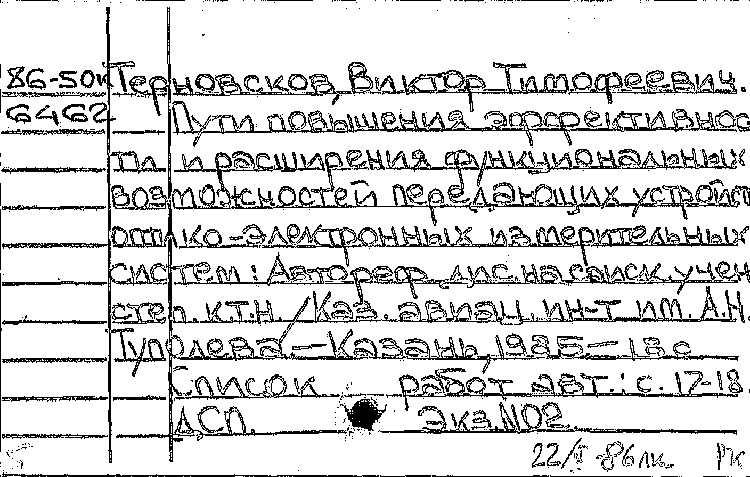 86-50к Терновсков, Виктор Тимофеевич.
6462 Пути повышения эффективнос
ти и расширения функциональных
возможностей передающих устройст
оптико-электронных измерительных
систем: Автореф. дис. на соиск. учен
степ. к.т.н. /Каз. авиац. ин-т им. А.Н.
Туполева.—Казань, 1985—18 с
Список работ авт.: с. 17-18.
ДСП. Экз.№02.
22/ -86